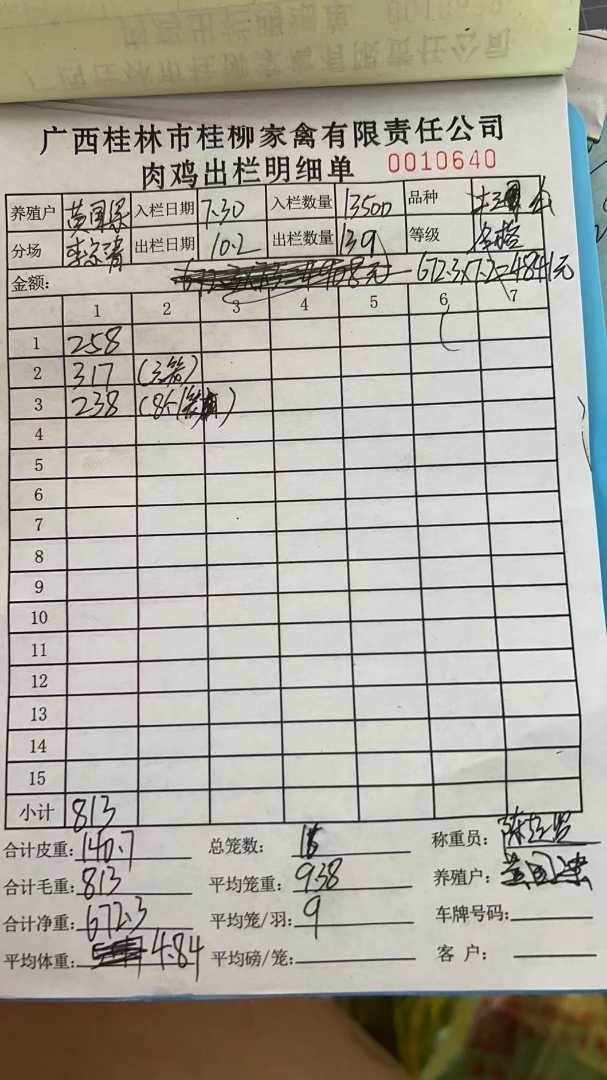 广西桂林市桂柳家禽有限责任公司
肉鸡出栏明细单 0010640
养殖户 入栏日期 7.30 入栏数量 13500 品种
分场 出栏日期 10.2 出栏数量 139 等级
金额: 672.3×7.2=4841元
1 2 3 4 5 6 7
1 258
2 317 (3笼)
3 238
4
5
6
7
8
9
10
11
12
13
14
15
小计 813
合计皮重: 140.7 总笼数: 称重员:
合计毛重: 813 平均笼重: 9.38 养殖户:
合计净重: 672.3 平均笼/羽: 9 车牌号码:
平均体重: 4.84 平均磅/笼: 客 户: